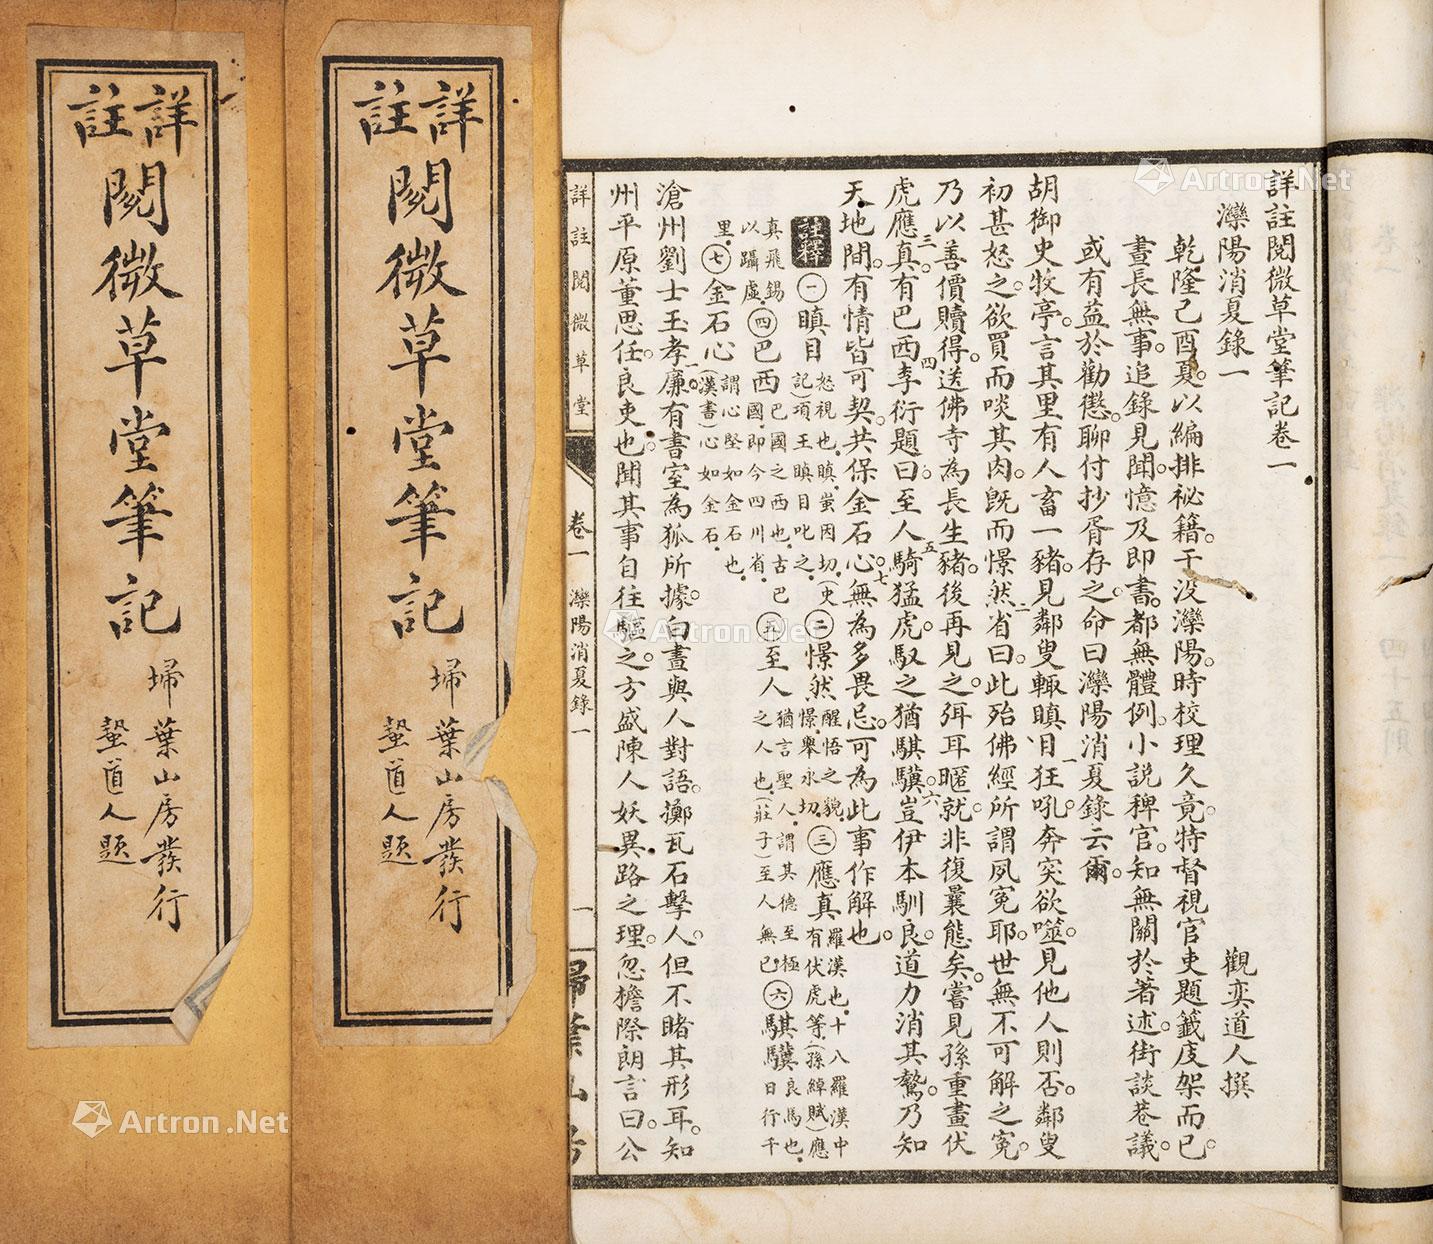 詳註
閱微草堂筆記
埽葉山房發行
蝅道人題
詳註
閱微草堂筆記
埽葉山房發行
蝅道人題
詳註閱微草堂筆記卷一
灤陽消夏錄一
觀奕道人撰
乾隆己酉夏。以編排祕籍。于役灤陽。時校理久竟。特督視官吏題籤庋架而已。
晝長無事。追錄見聞。憶及即書。都無體例。小說稗官。知無關於著述。街談巷議。
或有益於勸懲。聊付抄胥存之。命曰灤陽消夏錄云爾。
胡御史牧亭。言其里有人畜一豬。見鄰叟輒瞋目一狂吼。奔突欲噬。見他人則否。鄰叟
初甚怒之。欲買而啖其肉。旣而憬然二省曰。此殆佛經所謂夙冤耶。世無不可解之冤。
乃以善價贖得。送佛寺為長生豬。後再見之。弭耳暱就。非復曩態矣。嘗見孫重畫伏
虎應真三。有巴西四李衍題曰。至人五騎猛虎。馭之猶騏驥六。豈伊本馴良。道力消其鷙。乃知
天地間。有情皆可契。共保金石心七。無為多畏忌。可為此事作解也。
註釋
㊀瞋目 怒視也。瞋。蚩因切。(史記)項王瞋目叱之。
㊁憬然 醒悟之貌。憬。舉永切。
㊂應真 羅漢也。十八羅漢中有伏虎等。(孫綽賦)應真飛錫以躡虛。
㊃巴西 巴國之西也。古巴國。即今四川省。
㊄至人 猶言聖人。謂其德至極之人也。(莊子)至人無己。
㊅騏驥 良馬也。日行千里。
㊆金石心 謂心堅如金石也。(漢書)心如金石。
滄州劉士玉孝廉一。有書室為狐所據。白晝與人對語。擲瓦石擊人。但不睹其形耳。知
州平原董思任。良吏也。聞其事自往驅之。方盛陳人妖異路之理。忽檐際朗言曰。公
詳註閱微草堂
卷一
灤陽消夏錄一
一
Artron.Net
Artron.Net
Artron.Net